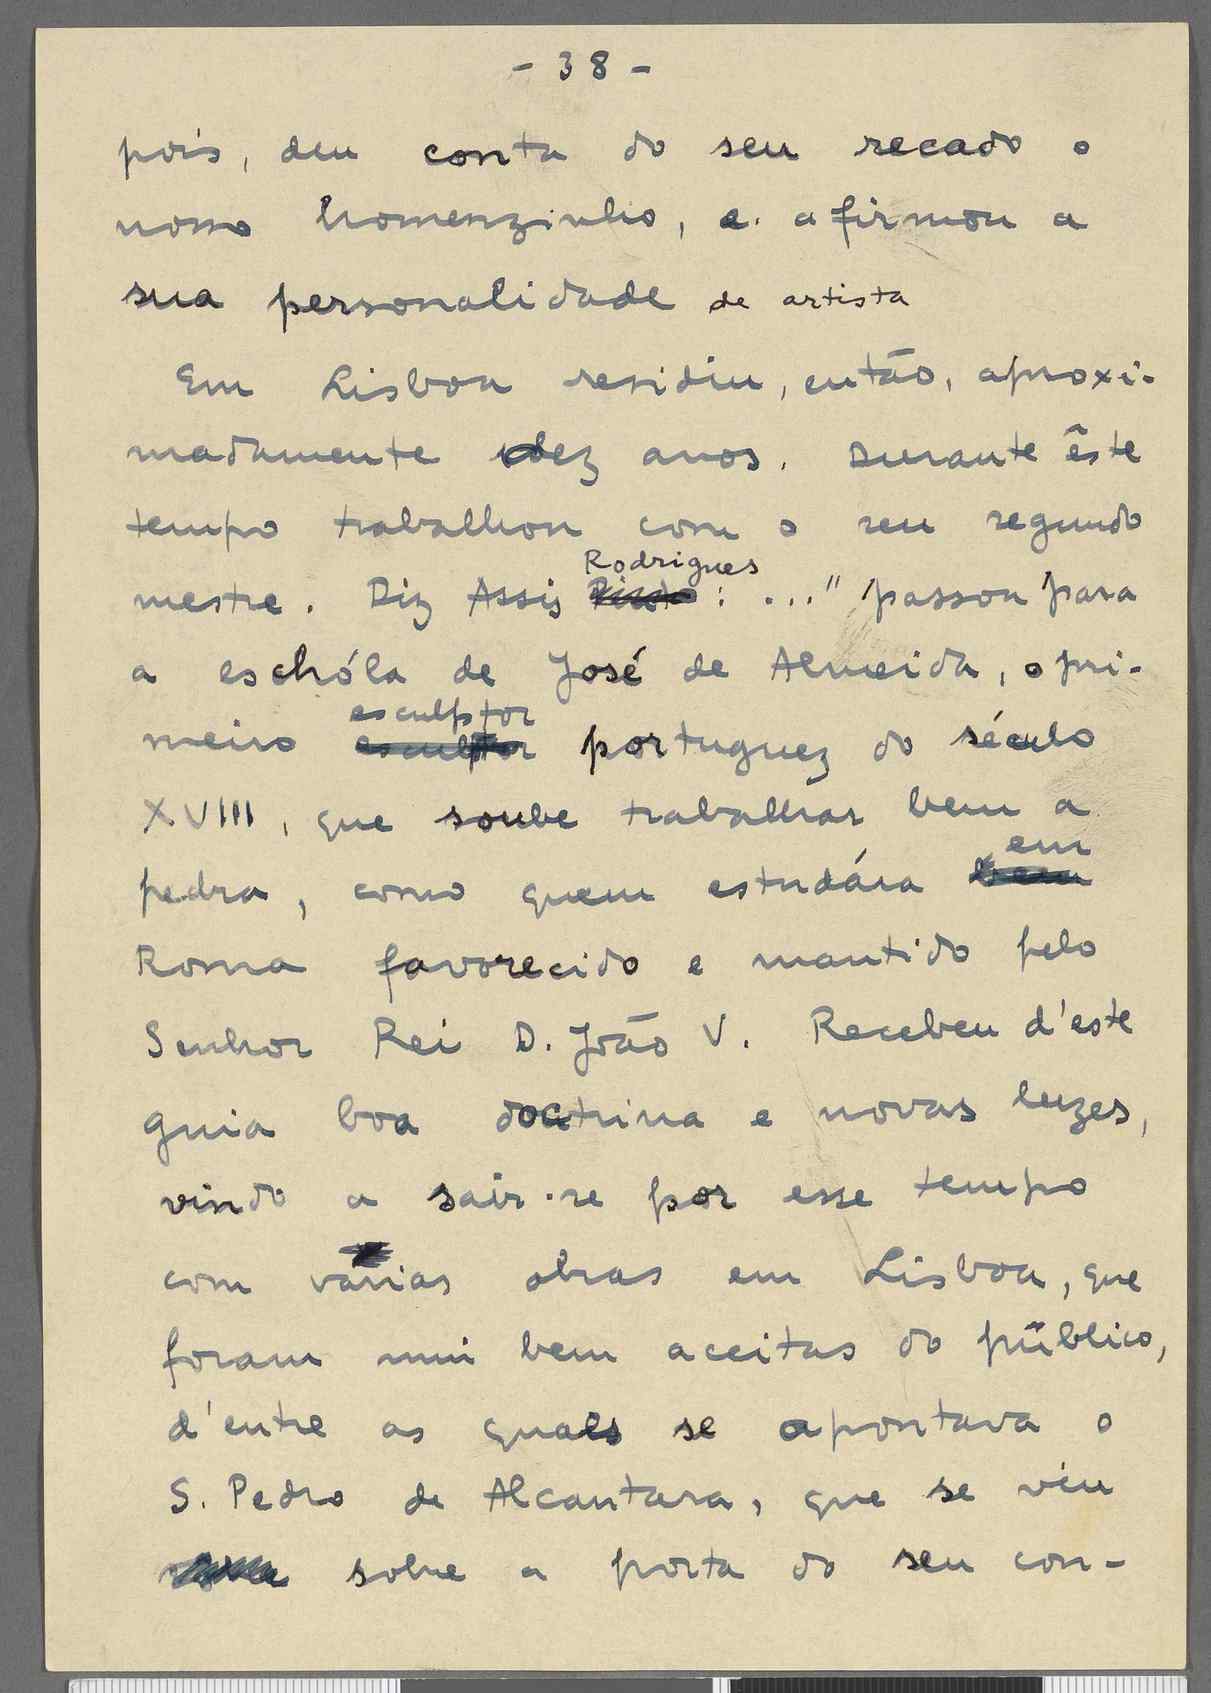 - 38 -
pois, deu conta do seu recado o
nosso homenzinho, e. afirmou a
sua personalidade de artista
Em Lisboa residiu, então, aproxi-
madamente dez anos. Durante êste
tempo trabalhou com o seu segundo
Rodrigues
mestre. Diz Assis : ..." passou para
a eschóla de José de Almeida, o pri-
esculptor
meiro esculptor portuguez do século
XVIII, que soube trabalhar bem a
em
pedra, como quem estudára bem
Roma favorecido e mantido pelo
Senhor Rei D. João V. Recebeu d'este
guia boa doctrina e novas luzes,
vindo a sair-se por esse tempo
com varias obras em Lisboa, que
foram mui bem aceitas do público,
d'entre as quaes se apontava o
S. Pedro de Alcantara, que se véu
sobre a porta do seu con-